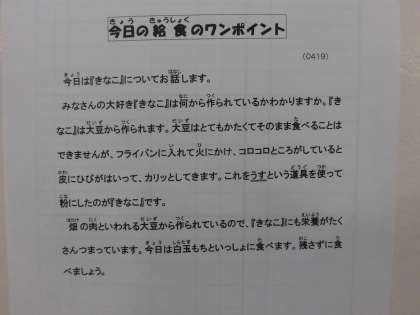 今日の給食のワンポイント
(0419)
今日は『きなこ』についてお話します。
みなさんの大好き『きなこ』は何から作られているかわかりますか。『き
なこ』は大豆から作られます。大豆はとてもかたくてそのまま食べることは
できませんが、フライパンに入れて火にかけ、コロコロところがしていると
皮にひびがはいって、カリッとしてきます。これをうすという道具を使って
粉にしたのが『きなこ』です。
畑の肉といわれる大豆から作られているので、『きなこ』にも栄養がたく
さんつまっています。今日は白玉もちといっしょに食べます。残さずに食
べましょう。